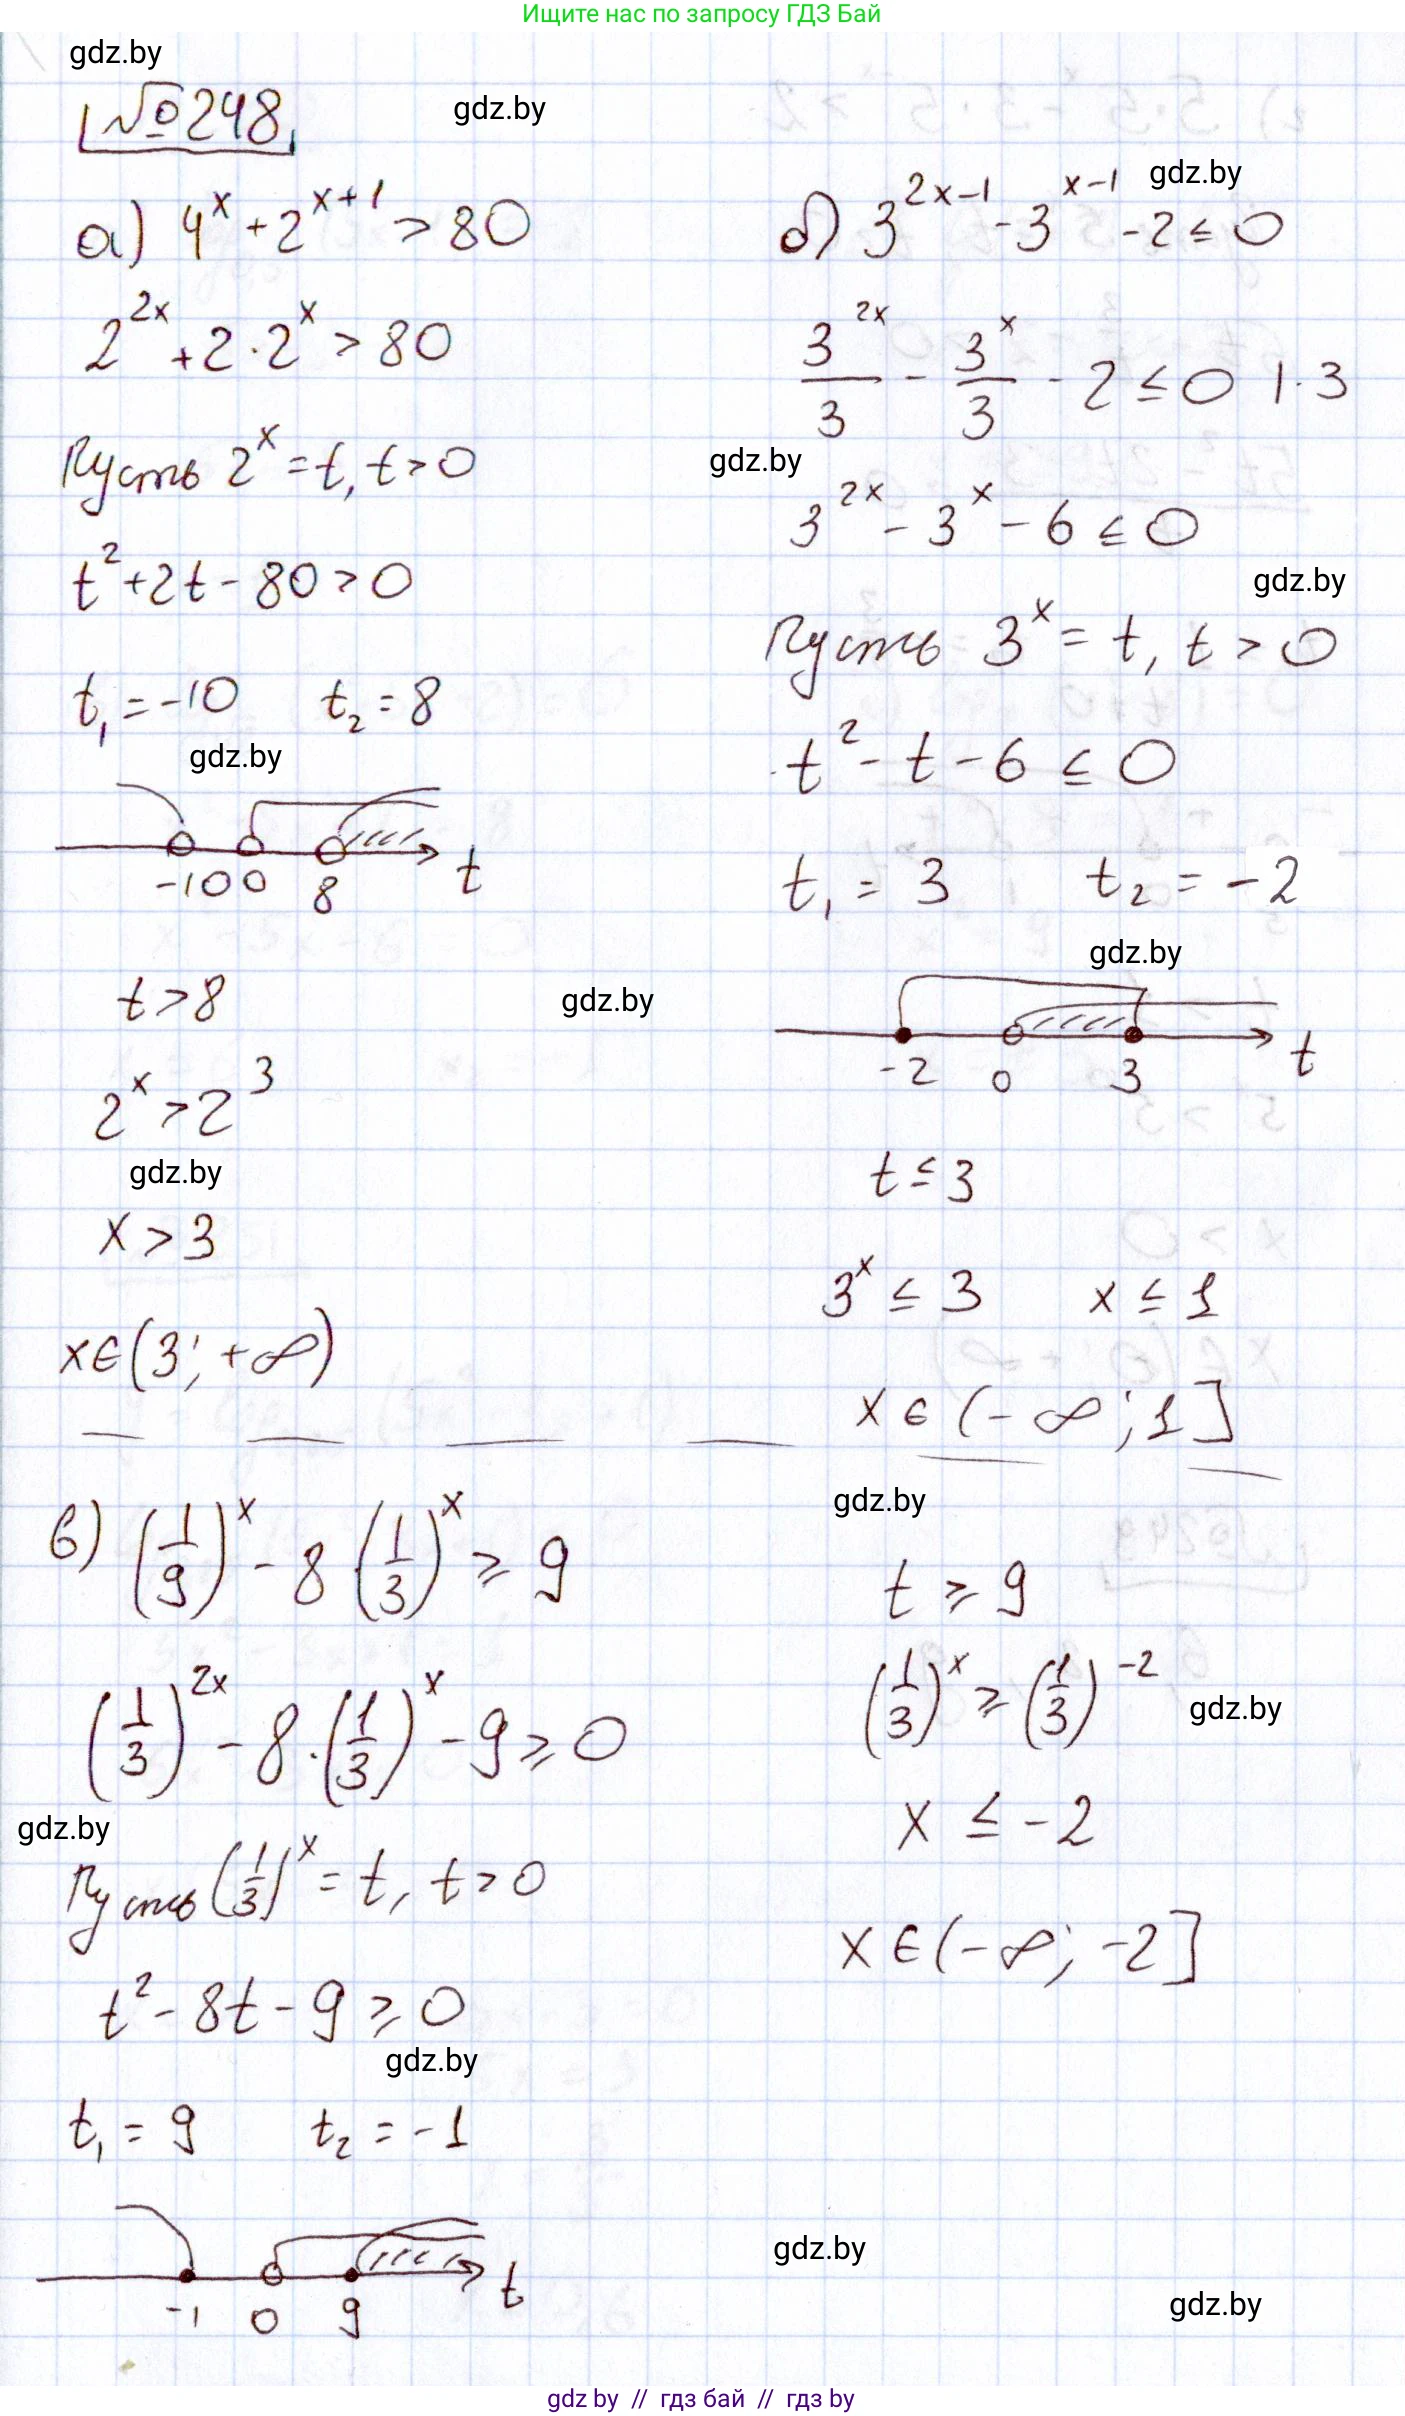 Ищите нас по запросу ГДЗ Бай
gdz.by
№ 248
gdz.by
а) 4^x + 2^{x+1} > 80
2^{2x} + 2 · 2^x > 80
Пусть 2^x = t, t > 0
t^2 + 2t - 80 > 0
t_1 = -10 t_2 = 8
gdz.by
-10 0 8 t
t > 8
gdz.by
2^x > 2^3
gdz.by
x > 3
x ∈ (3; +∞)
gdz.by
б) 3^{2x-1} - 3^{x-1} - 2 ≤ 0
3^{2x}/3 - 3^x/3 - 2 ≤ 0 | · 3
gdz.by
3^{2x} - 3^x - 6 ≤ 0
gdz.by
Пусть 3^x = t, t > 0
t^2 - t - 6 ≤ 0
t_1 = 3 t_2 = -2
gdz.by
-2 0 3 t
t ≤ 3
3^x ≤ 3 x ≤ 1
x ∈ (-∞; 1]
в) (1/9)^x - 8 · (1/3)^x ≥ 9
(1/3)^{2x} - 8 · (1/3)^x - 9 ≥ 0
gdz.by
Пусть (1/3)^x = t, t > 0
t^2 - 8t - 9 ≥ 0
gdz.by
t_1 = 9 t_2 = -1
-1 0 9 t
gdz.by
t ≥ 9
(1/3)^x ≥ (1/3)^{-2}
gdz.by
x ≤ -2
x ∈ (-∞; -2]
gdz.by
gdz.by
gdz by // гдз бай // гдз by